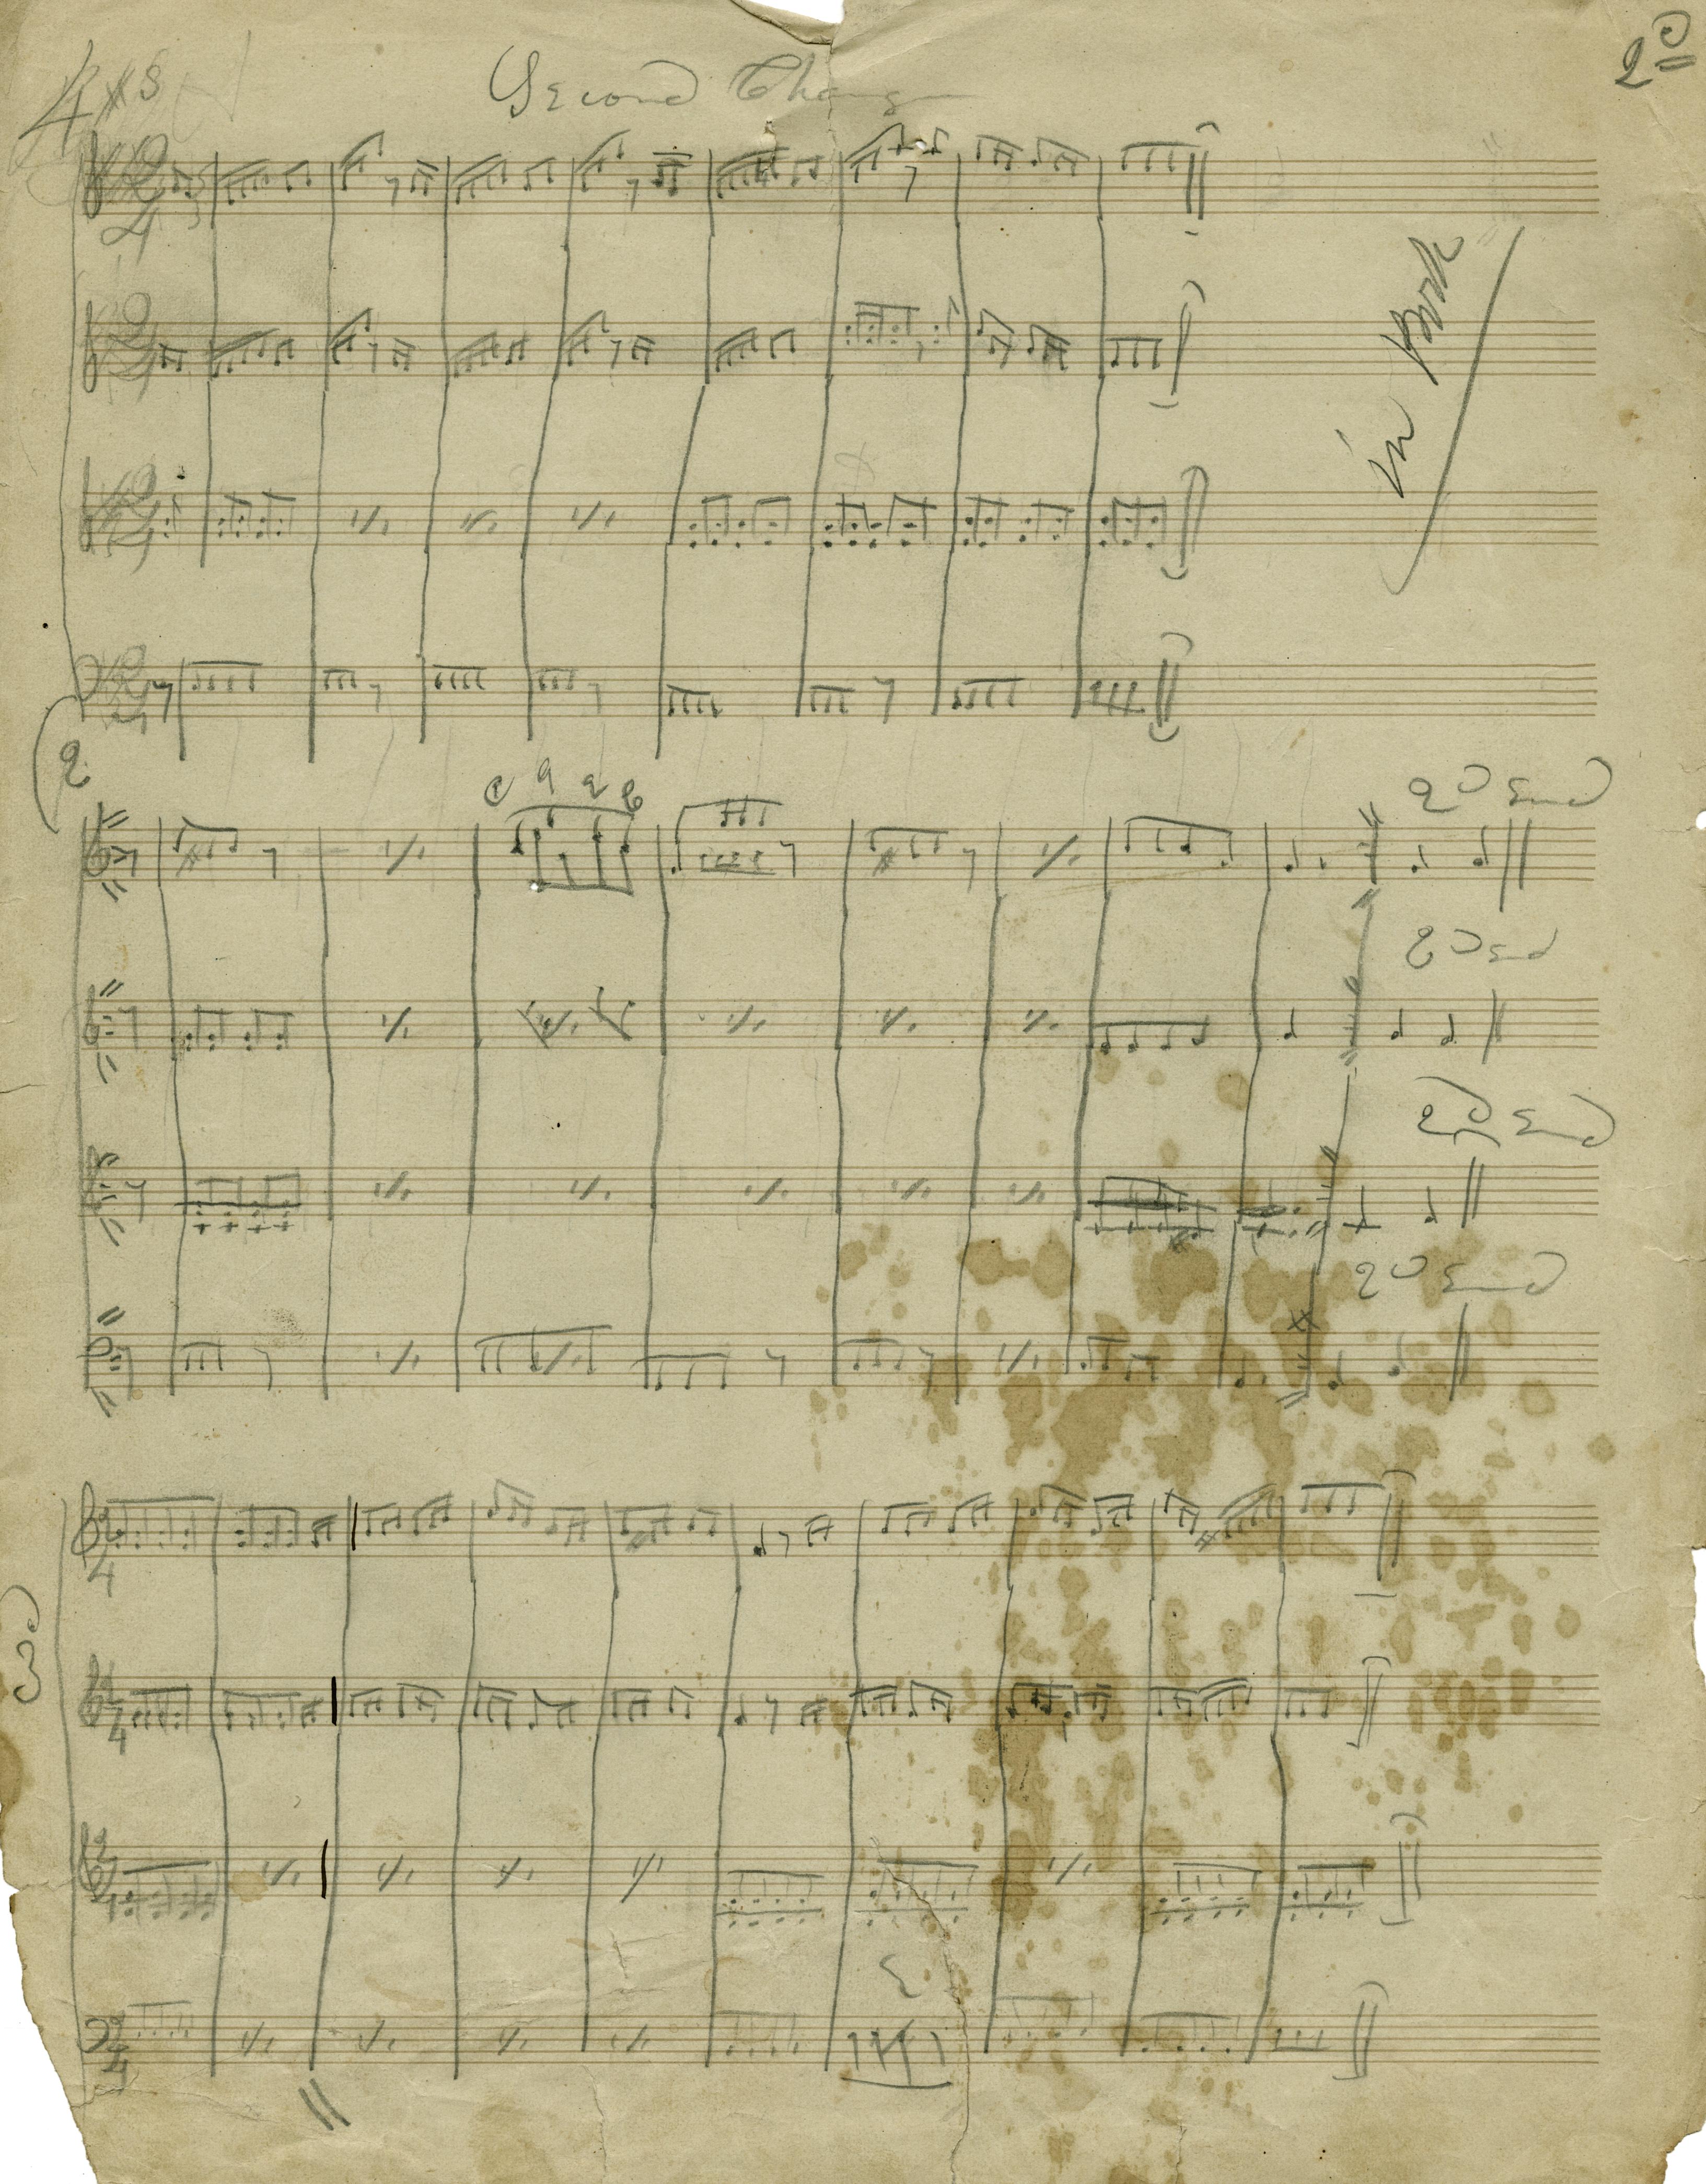 4 #s
Second Change
2D
in Book
2
2D End
2D End
2D End
2D End
3D